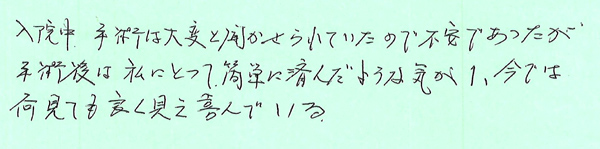 入院中 手術は大変と聞かせられていたので不安であったが
手術後は私にとって、簡単に済んだような気がし、今では
何見ても良く見え喜んでいる。